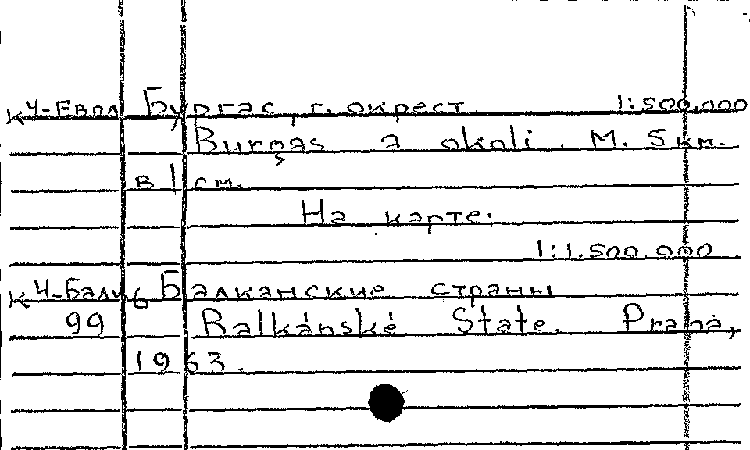 К 4-Евпл Бургас, г. окрест. 1:500.000
Burgas a okoli. М. 5 км.
в 1 см.
На карте:
1:1.500.000
К 4-Балк Балканские страны
99 Balkánské State. Praha,
1963.